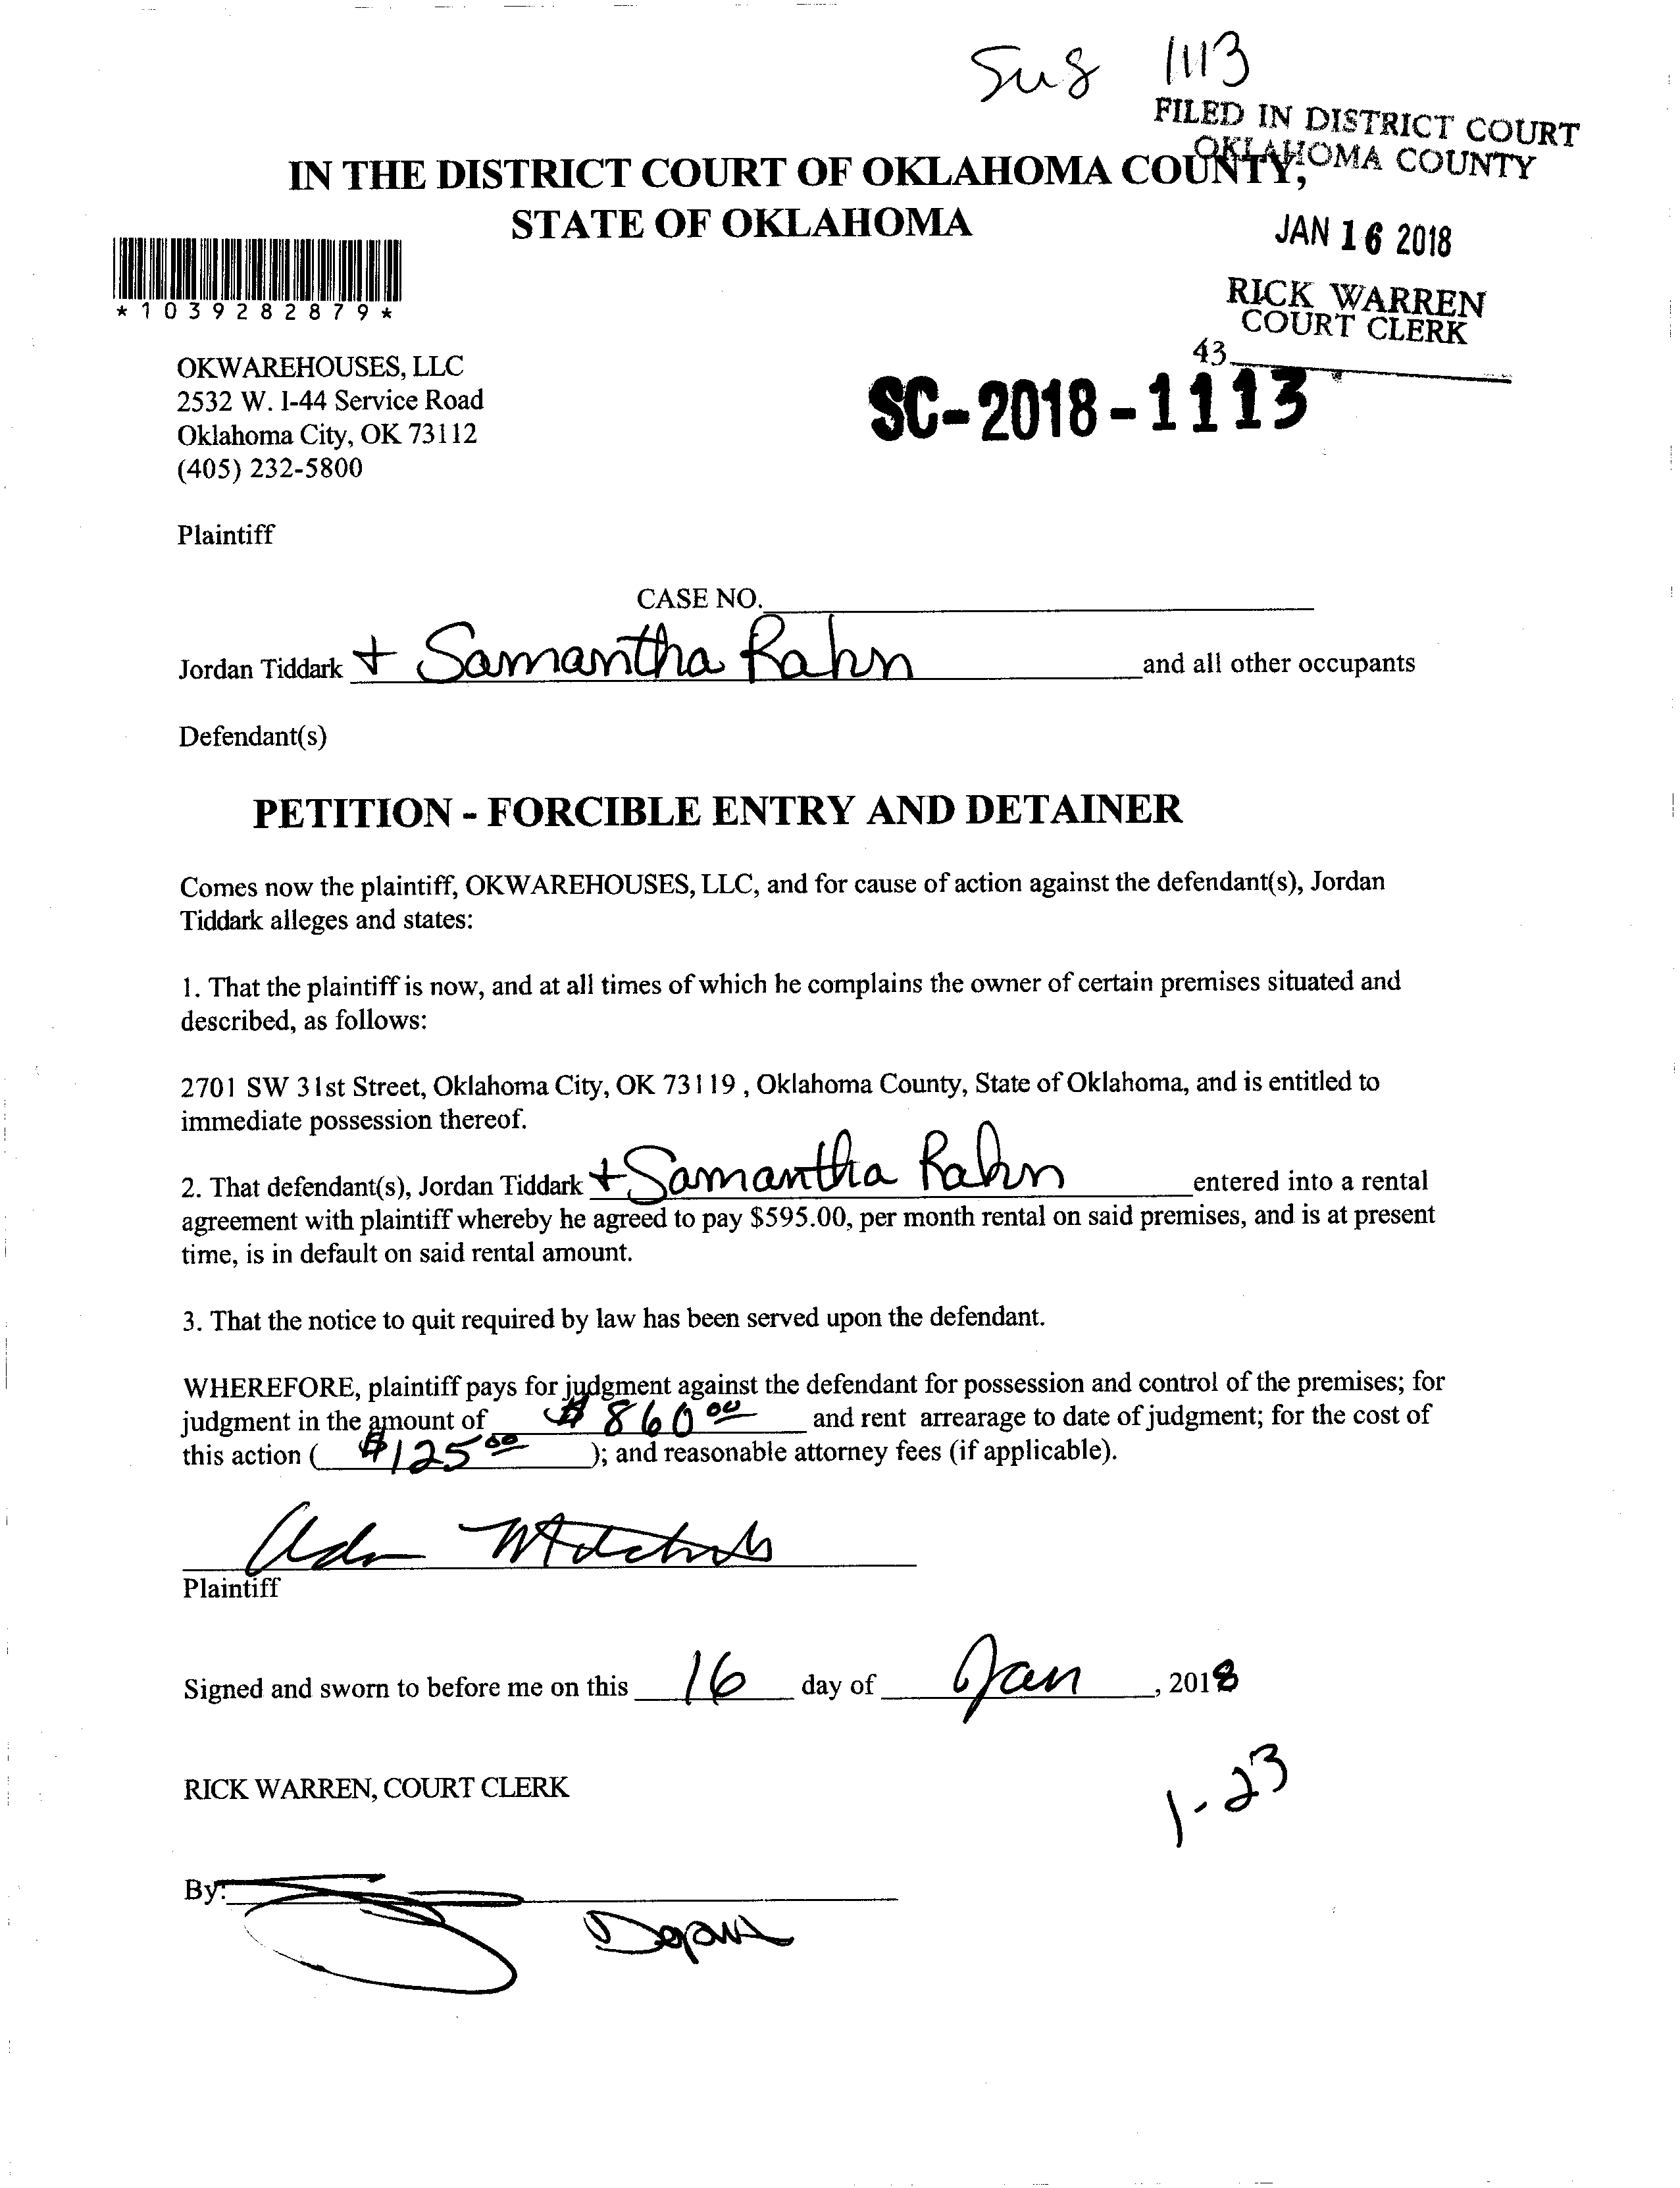 1113
FILED IN DISTRICT COURT
OKLAHOMA COUNTY
IN THE DISTRICT COURT OF OKLAHOMA COUNTY,
STATE OF OKLAHOMA
JAN 16 2018
RICK WARREN
COURT CLERK
43
*1039282879*
OKWAREHOUSES, LLC
2532 W. I-44 Service Road
Oklahoma City, OK 73112
(405) 232-5800
SC-2018-1113
Plaintiff
CASE NO.
Jordan Tiddark + Samantha Rahn and all other occupants
Defendant(s)
PETITION - FORCIBLE ENTRY AND DETAINER
Comes now the plaintiff, OKWAREHOUSES, LLC, and for cause of action against the defendant(s), Jordan
Tiddark alleges and states:
1. That the plaintiff is now, and at all times of which he complains the owner of certain premises situated and
described, as follows:
2701 SW 31st Street, Oklahoma City, OK 73119 , Oklahoma County, State of Oklahoma, and is entitled to
immediate possession thereof.
2. That defendant(s), Jordan Tiddark + Samantha Rahn entered into a rental
agreement with plaintiff whereby he agreed to pay $595.00, per month rental on said premises, and is at present
time, is in default on said rental amount.
3. That the notice to quit required by law has been served upon the defendant.
WHEREFORE, plaintiff pays for judgment against the defendant for possession and control of the premises; for
judgment in the amount of $860.00 and rent arrearage to date of judgment; for the cost of
this action ( $125.00 ); and reasonable attorney fees (if applicable).
Plaintiff
Signed and sworn to before me on this 16 day of Jan , 2018
RICK WARREN, COURT CLERK
1-23
By: